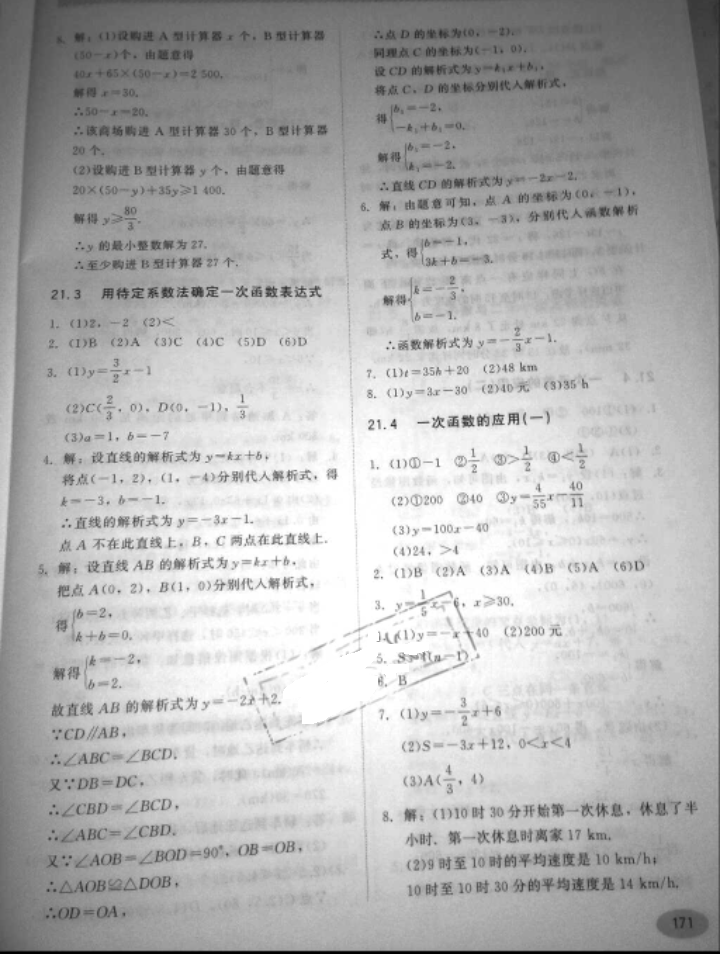 8. 解：(1)设购进 A 型计算器 x 个，B 型计算器
(50－x)个，由题意得
40x＋65×(50－x)＝2 500.
解得 x＝30.
∴50－x＝20.
∴该商场购进 A 型计算器 30 个，B 型计算器
20 个.
(2)设购进 B 型计算器 y 个，由题意得
20×(50－y)＋35y≥1 400.
解得 y≥80/3.
∴y 的最小整数解为 27.
∴至少购进 B 型计算器 27 个.
21.3 用待定系数法确定一次函数表达式
1. (1)2，－2 (2)＜
2. (1)B (2)A (3)C (4)C (5)D (6)D
3. (1)y＝3/2x－1
(2)C(2/3，0)，D(0，－1)，1/3
(3)a＝1，b＝－7
4. 解：设直线的解析式为 y＝kx＋b，
将点(－1，2)，(1，－4)分别代入解析式，得
k＝－3，b＝－1.
∴直线的解析式为 y＝－3x－1.
点 A 不在此直线上，B，C 两点在此直线上.
5. 解：设直线 AB 的解析式为 y＝kx＋b，
把点 A(0，2)，B(1，0)分别代入解析式，
得{b＝2，
k＋b＝0.
解得{k＝－2，
b＝2.
故直线 AB 的解析式为 y＝－2x＋2.
∵CD∥AB，
∴∠ABC＝∠BCD.
又∵DB＝DC，
∴∠CBD＝∠BCD，
∴∠ABC＝∠CBD.
又∵∠AOB＝∠BOD＝90°，OB＝OB，
∴△AOB≌△DOB，
∴OD＝OA，
∴点 D 的坐标为(0，－2).
同理点 C 的坐标为(－1，0).
设 CD 的解析式为 y＝k₁x＋b₁，
将点 C，D 的坐标分别代入解析式，
得{b₁＝－2，
－k₁＋b₁＝0.
解得{b₁＝－2，
k₁＝－2.
∴直线 CD 的解析式为 y＝－2x－2.
6. 解：由题意可知，点 A 的坐标为(0，－1)，
点 B 的坐标为(3，－3)，分别代入函数解析
式，得{b＝－1，
3k＋b＝－3.
解得{k＝－2/3，
b＝－1.
∴函数解析式为 y＝－2/3x－1.
7. (1)t＝35h＋20 (2)48 km
8. (1)y＝3x－30 (2)40 元 (3)35 h
21.4 一次函数的应用(一)
1. (1)①－1 ②1/2 ③＞1/2 ④＜1/2
(2)①200 ②40 ③y＝4/55x－40/11
(3)y＝100x－40
(4)24，＞4
2. (1)B (2)A (3)A (4)B (5)A (6)D
3. y＝1/5x－6，x≥30.
4. (1)y＝－x＋40 (2)200 元
5. S＝4(n－1).
6. B
7. (1)y＝－3/2x＋6
(2)S＝－3x＋12，0＜x＜4
(3)A(4/3，4)
8. 解：(1)10 时 30 分开始第一次休息，休息了半
小时. 第一次休息时离家 17 km.
(2)9 时至 10 时的平均速度是 10 km/h；
10 时至 10 时 30 分的平均速度是 14 km/h.
171